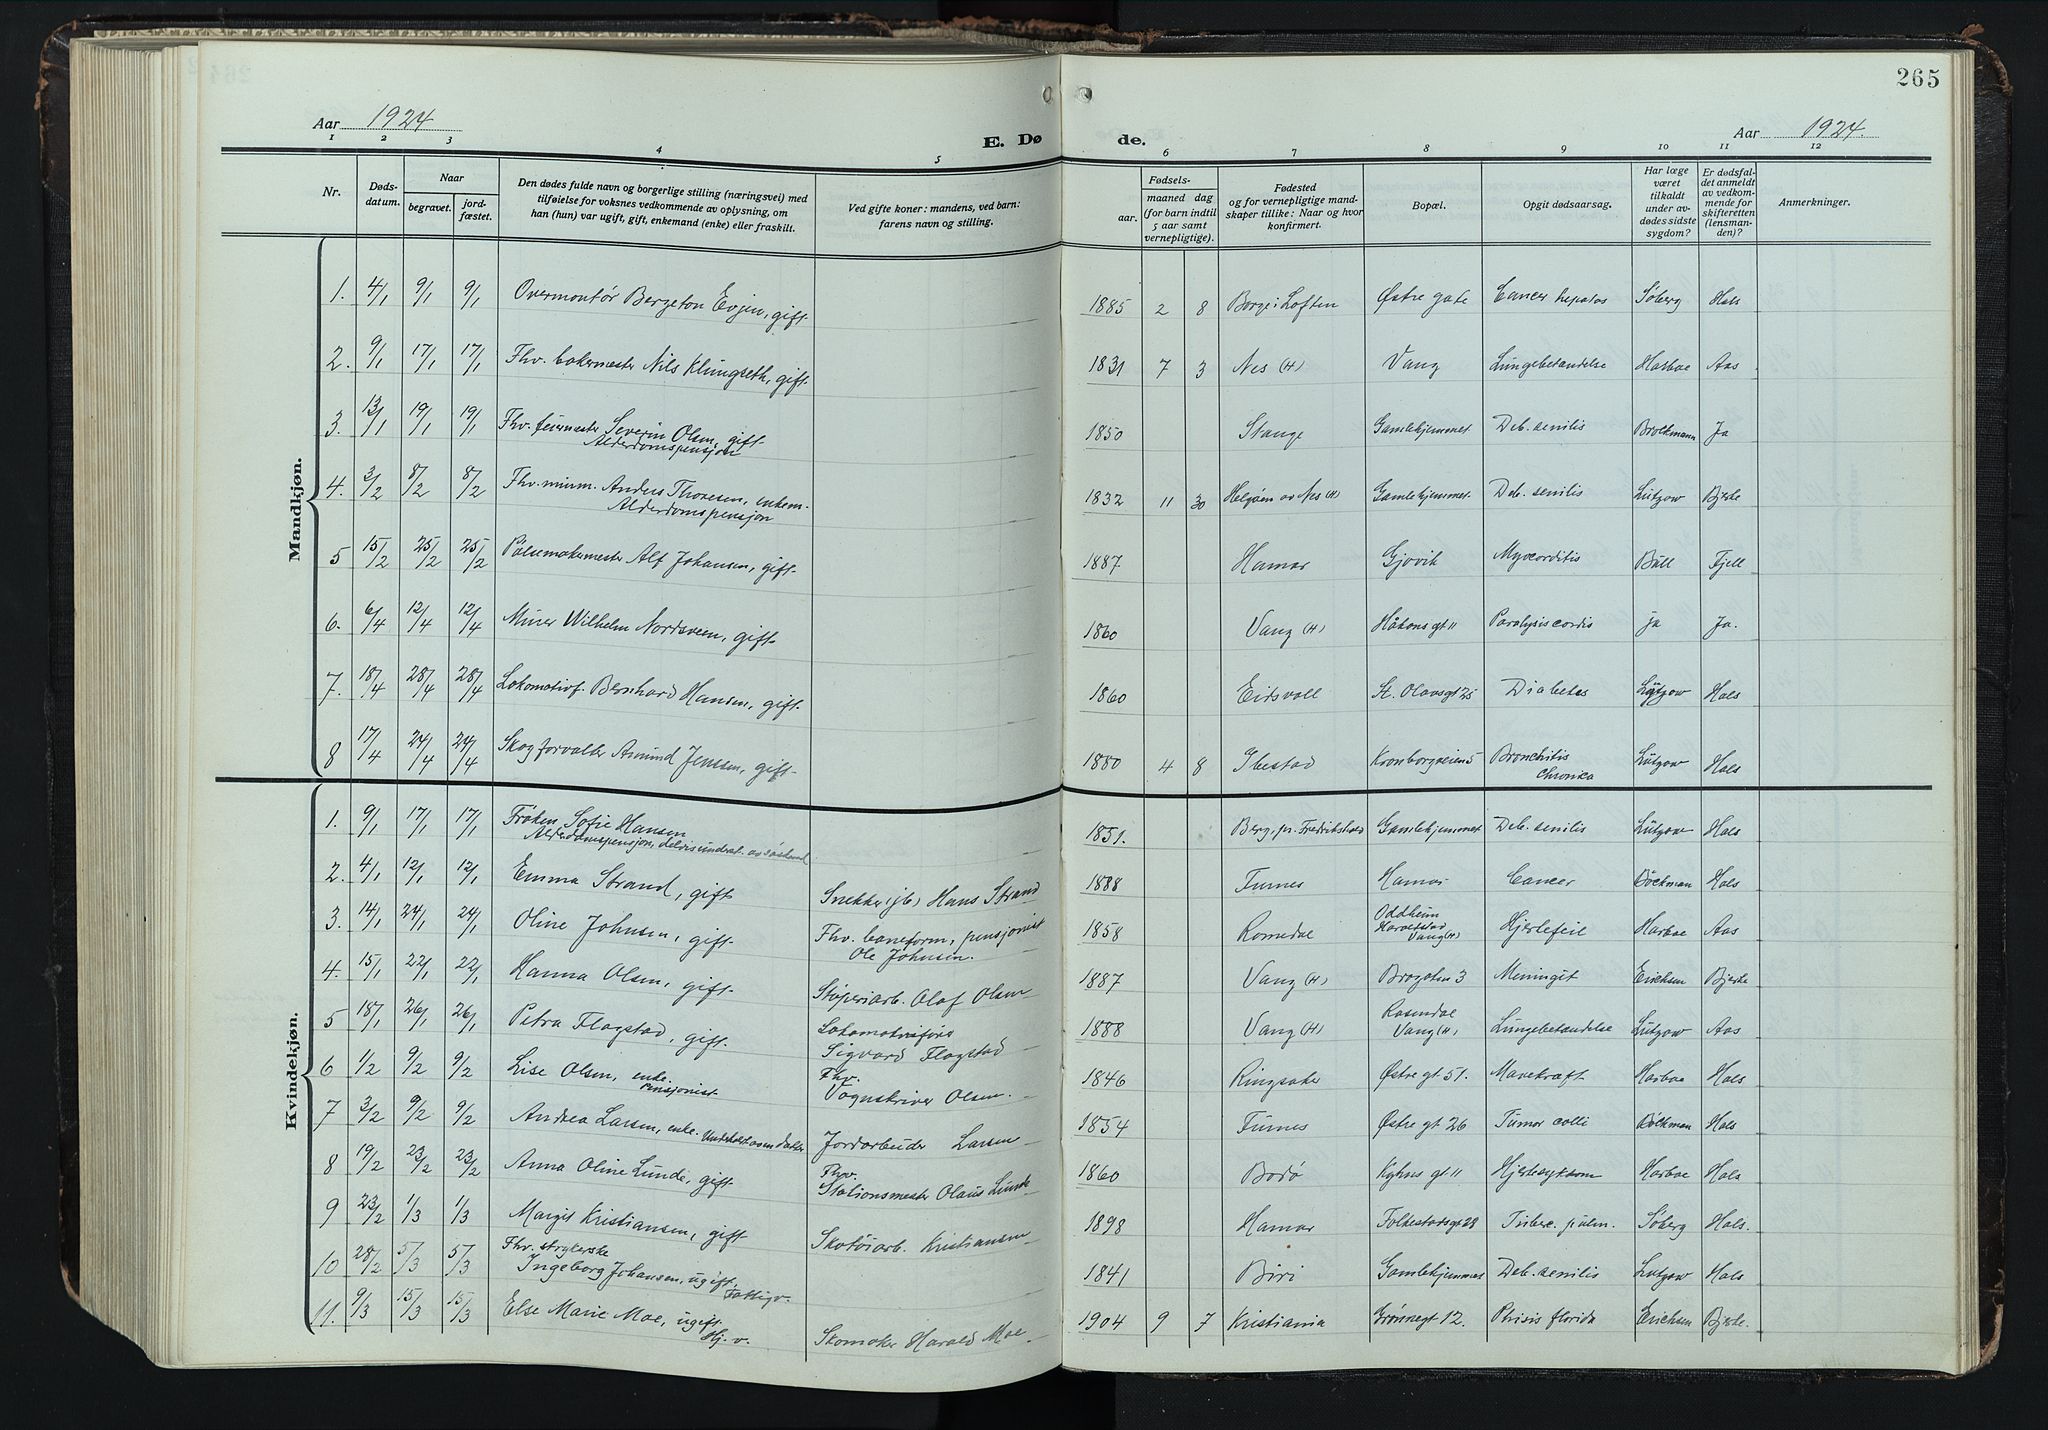 265
Aar 1924
E. Dø
de.
Aar 1924.
1 2 3 4 5 6 7 8 9 10 11 12
Nr.
Døds-
datum.
Naar
begravet.
jord-
fæstet.
Den dødes fulde navn og borgerlige stilling (næringsvei) med
tilføielse for voksnes vedkommende av oplysning, om
han (hun) var ugift, gift, enkemand (enke) eller fraskilt.
Ved gifte koner: mandens, ved barn:
farens navn og stilling.
Fødsels-
aar.
maaned dag
(for barn indtil
5 aar samt
vernepligtige).
Fødested
og for vernepligtige mand-
skaper tillike: Naar og hvor
konfirmert.
Bopæl.
Opgit dødsaarsag.
Har læge
været
tilkaldt
under av-
dødes sidste
sygdom?
Er dødsfal-
det anmeldt
av vedkom-
mende for
skifteretten
(lensman-
den)?
Anmerkninger.
Mandkjøn.
1. 4/1 9/1 9/1 Overmontør Bergeton Evjen, gift 1885 2 8 Borge i Loften Østre gate Cancer hepatos Søberg Hals
2. 9/1 17/1 17/1 Fhv. bakermester Nils Klungseth, gift 1831 7 3 Nes (H) Vang Lungebetændelse Harboe Aas
3. 13/1 19/1 19/1 Fhv. feiermester Severin Olsen, gift 1850 Stange Gamlehjemmet Deb. senilis Bøckmann Ja
Alderdomspensjon
4. 3/2 8/2 8/2 Fhv. murm. Anders Thoresen, enkem. 1832 11 30 Helgøen av Nes (H) Gamlehjemmet Deb. senilis Lützow Bjerke
Alderdomspensjon
5 15/2 25/2 25/2 Pølsemakermester Alf Johansen, gift 1887 Hamar Gjøvik Myocarditis Bull Fjell
6. 6/4 12/4 12/4 Murer Wilhelm Nordsveen, gift 1860 Vang (H) Håkonsgt 11 Paralysis cordis ja Ja.
7. 18/4 28/4 28/4 Lokomotivf. Bernhard Hansen, gift 1860 Eidsvoll St. Olavsgt 25 Diabetes Lützow Hals
8 17/4 24/4 24/4 Skogforvalter Amund Jenssen, gift 1880 4 8 Ibestad Kronborgveien 5 Bronchitis Lützow Hals
chronica
Kvindekjøn.
1. 9/1 17/1 17/1 Frøken Sofie Hansen 1851. Berg, pr. Fredrikshald Gamlehjemmet Deb. senilis Lützow Hals
Alderdomspensjon, delvis underst. av søskend
2. 4/1 12/1 12/1 Emma Strand, gift Snekker (jb) Hans Strand 1888 Furnes Hamar Cancer Bøckman Hals
3. 14/1 24/1 24/1 Oline Johnsen, gift Fhv. baneform, pensjonist 1858 Romedal Oddheim Hjertefeil Harboe Aas
Ole Johnsen. Vang (H)
4. 15/1 22/1 22/1 Hanna Olsen, gift Støperiarb. Olaf Olsen 1887 Vang (H) Brogaten 3 Meningit Erichsen Bjerke
5 18/1 26/1 26/1 Petra Flagstad, gift Lokomotivfører 1888 Vang (H) Rosendal Lungebetændelse Lützow Aas
Sigvard Flagstad Vang (H)
6 1/2 9/2 9/2 Lise Olsen, enke. Fhv. 1846 Ringsaker Østre gt 51. Mavekræft Harboe Hals
pensjonist Vognskriver Olsen.
7 3/2 9/2 9/2 Andrea Larsen, enke. Underholdt av en datter Jordarbeider Larsen 1854 Furnes Østre gt 26 Tumor colli Bøckman Hals
8 19/2 23/2 23/2 Anna Oline Lunde, gift Fhv. 1860 Bodø gt 11 Hjertesykdom Harboe Hals
Stationsmester Olaus Lunde
9 23/2 1/3 1/3 Margit Kristiansen, gift Skotøiarb. Kristiansen 1898 Hamar Folkestadsgt 28 Tuberc. pulm. Søberg Hals.
10 28/2 5/3 5/3 Fhv. strykerske
Ingeborg Johansen, ugift, 1841 Biri Gamlehjemmet Deb. senilis Lützow Hals
Fattigv.
11. 9/3 15/3 15/3 Else Marie Moe, ugift. Skomaker Harald Moe 1904 9 7 Kristiania Grønnegt 12. Phisis florida Erichsen Bjerke.
Hj. v.